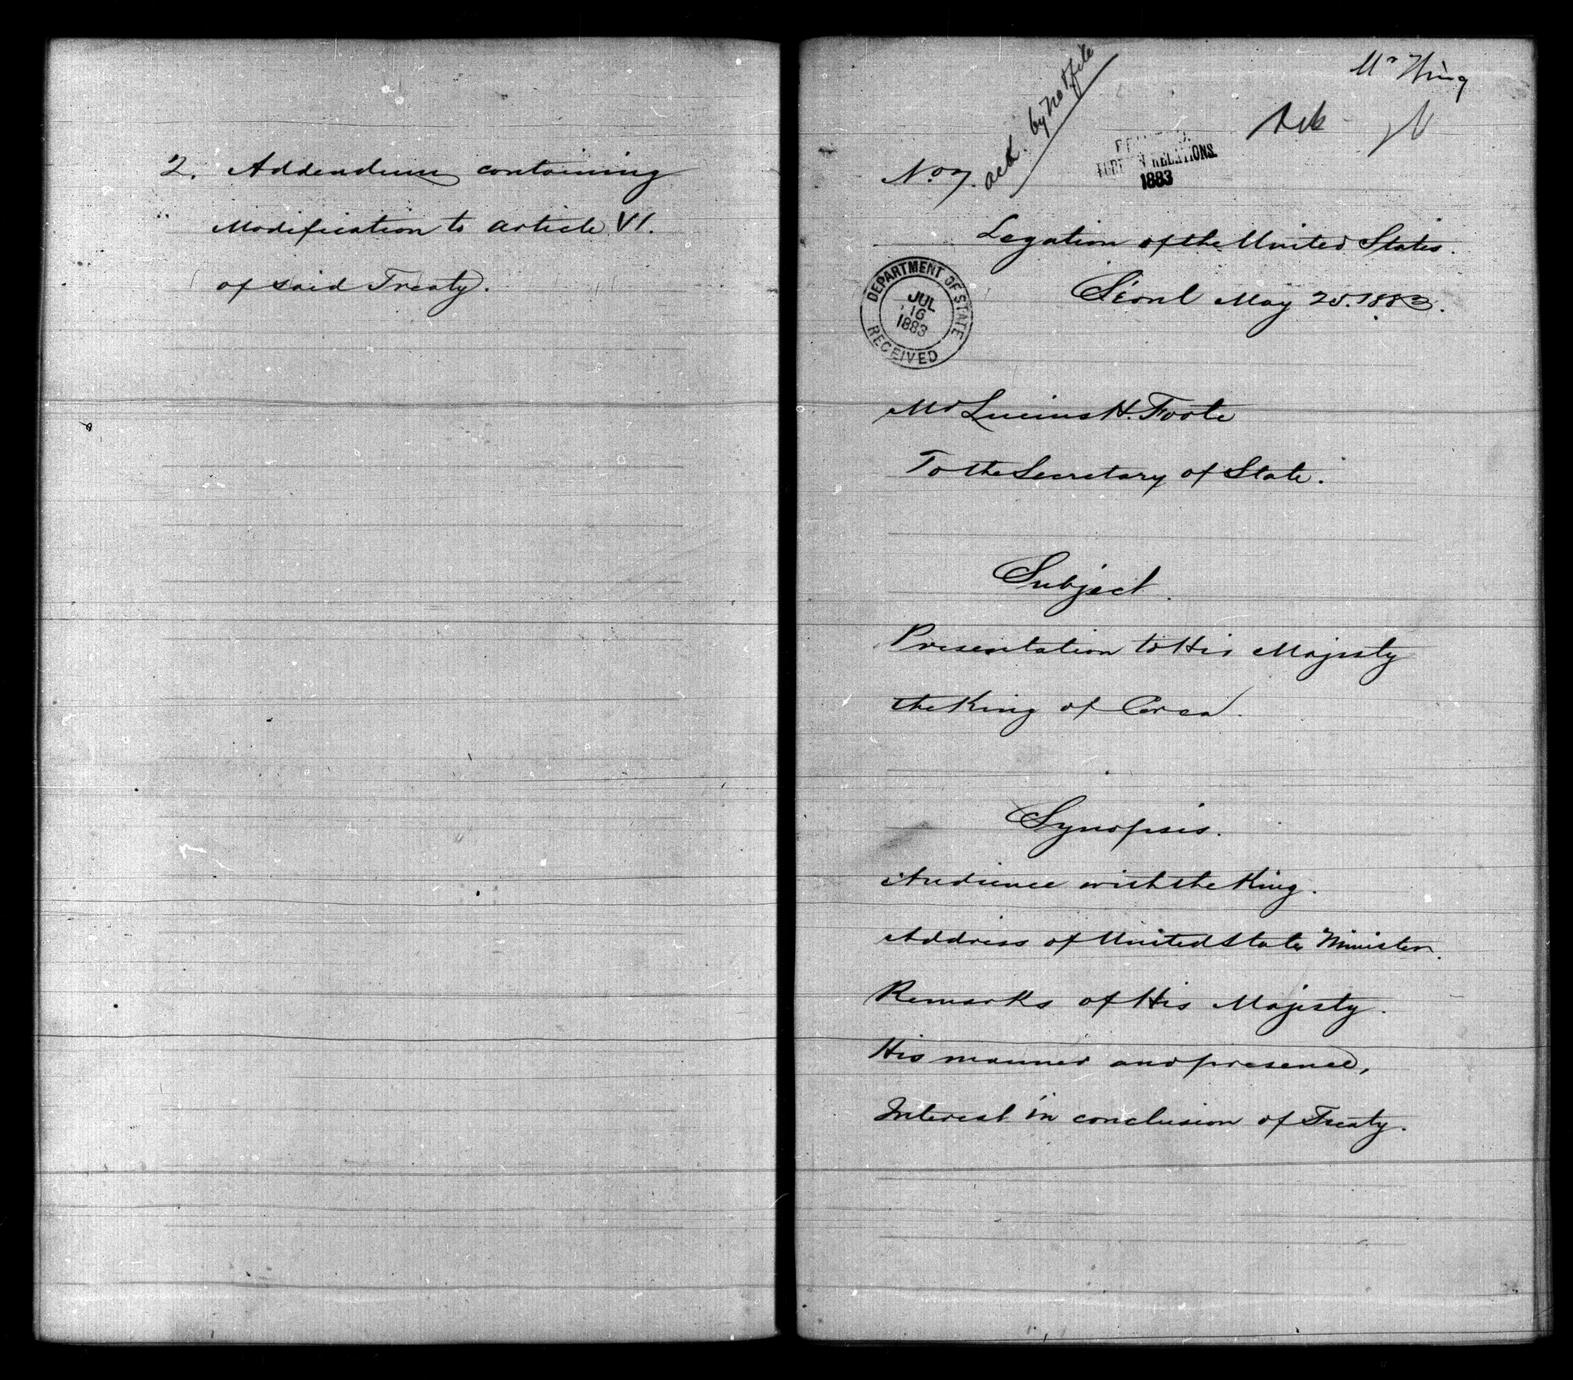 2. Addendum containing
Modification to article VI.
of said Treaty.
Mr
Ack
ack. by not file
No 7.
FOREIGN RELATIONS.
1883
Legation of the United States.
Séoul May 25. 1883.
DEPARTMENT OF STATE
JUL
16
1883
RECEIVED
Mr Lucius H. Foote
To the Secretary of State.
Subject.
Presentation to His Majesty
the King of Corea.
Synopsis.
Audience with the King.
Address of United States Minister.
Remarks of His Majesty.
His manner and presence,
Interest in conclusion of Treaty.